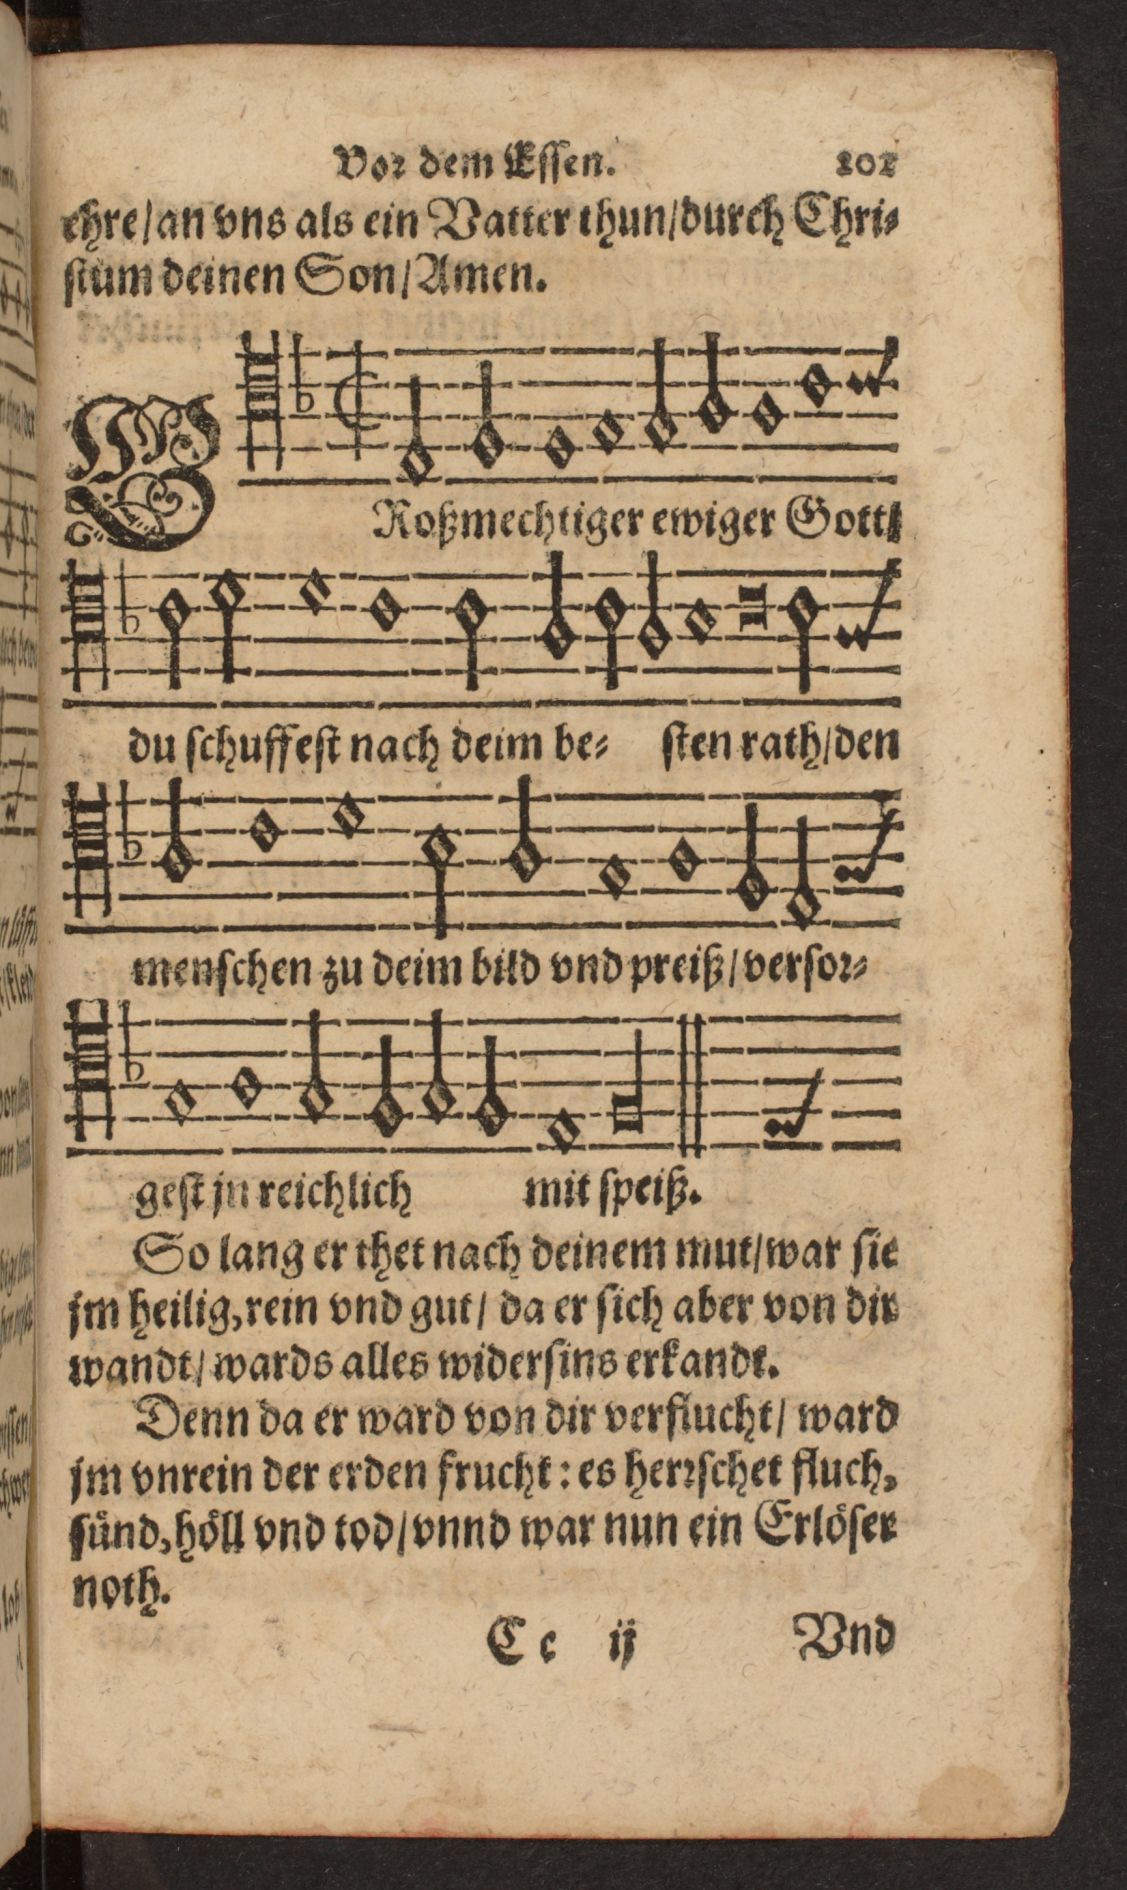 Vor dem Essen. 202
ehre/an vns als ein Vatter thun/durch Chri-
stum deinen Son/Amen.
GRoßmechtiger ewiger Gott/
du schuffest nach deim be- sten rath/den
menschen zu deim bild vnd preiß/versor-
gest jn reichlich mit speiß.
So lang er thet nach deinem mut/war sie
jm heilig, rein vnd gut/ da er sich aber von dir
wandt/wards alles widersins erkandt.
Denn da er ward von dir verflucht/ ward
jm vnrein der erden frucht: es herrschet fluch,
sünd, höll vnd tod/vnnd war nun ein Erlöser
noth.
C c ij Vnd